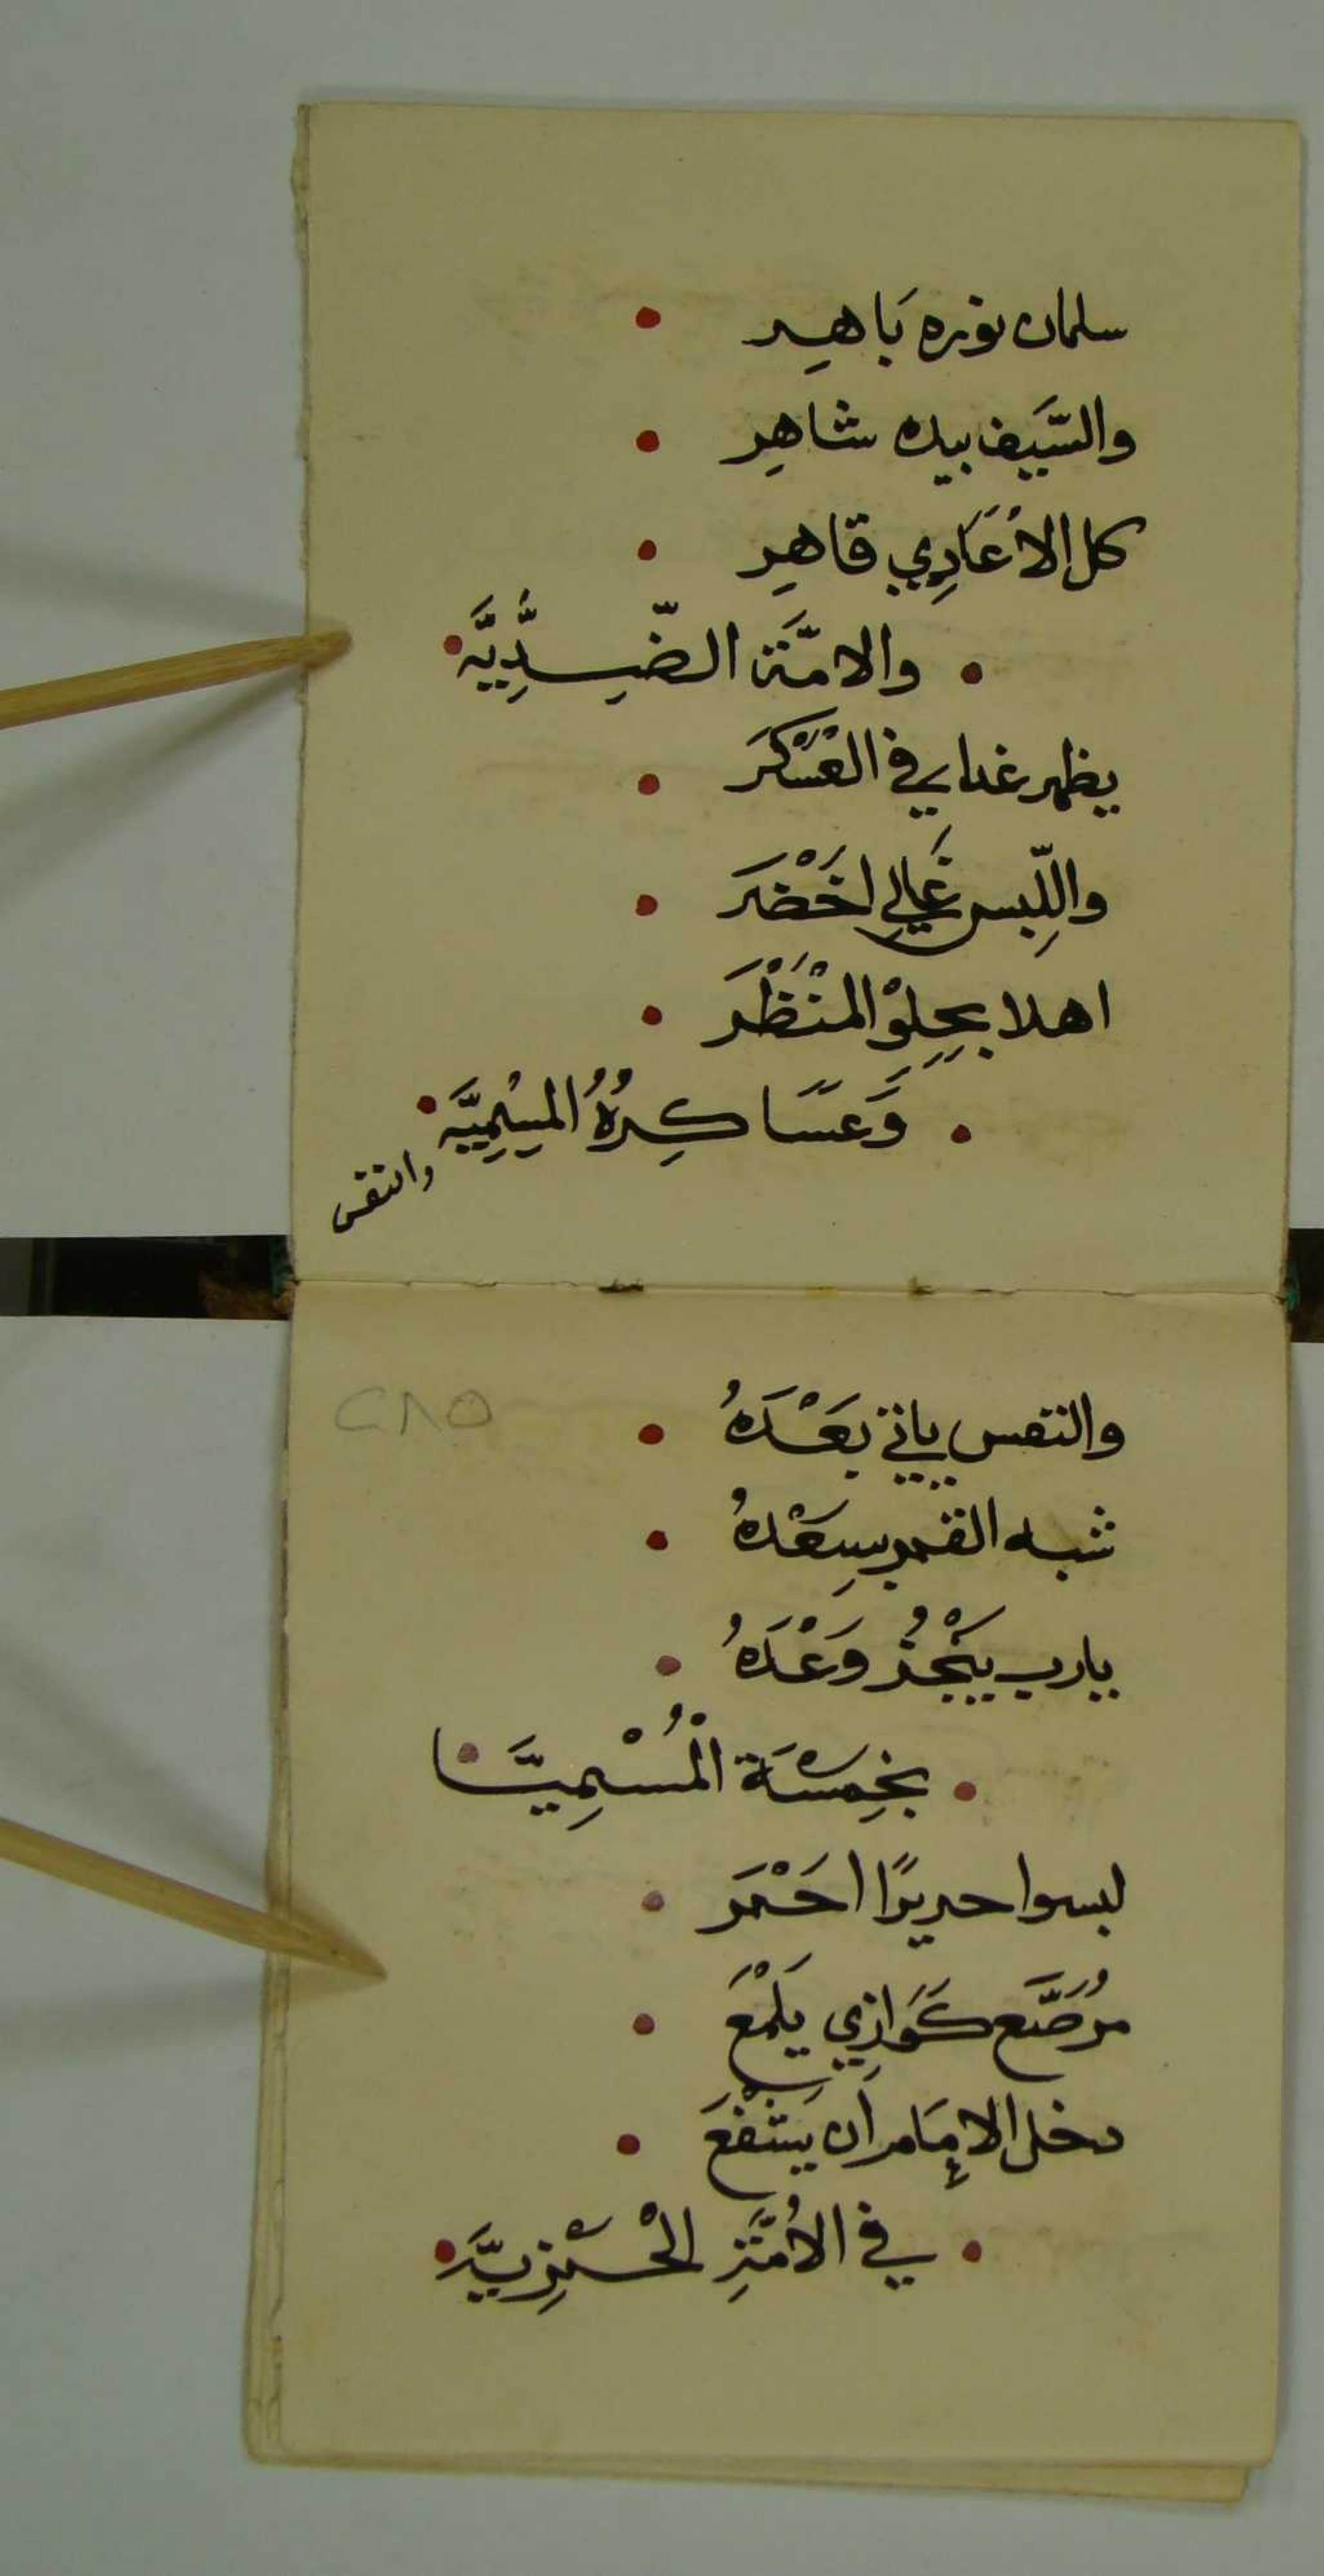 سلمان نوره بَاهِر
والسَّيف بيده شاهِر
كل الاعَادِي قاهِر
والامّة الضِّدِّيَّه
يظهر غدا في العَسْكَر
واللِّبس غَالِي اخْضَر
اهلا بحِلِوْ المنْظَر
وَعسَاكِرُهُ المِيْمِيَّه
والنفس
٢٨٥
والنفس ياتي بَعْدَهُ
شبه القمر بسِعْدهُ
يارب يَنْجُز وَعْدَهُ
بخِمسَة الْمُسْمِيَّا
لبسوا حريرًا احْمَر
مُرَصَّع كَوَازِي يَلْمَع
دخل الإمَام ان يَشْفَعَ
في الأُمَّةِ